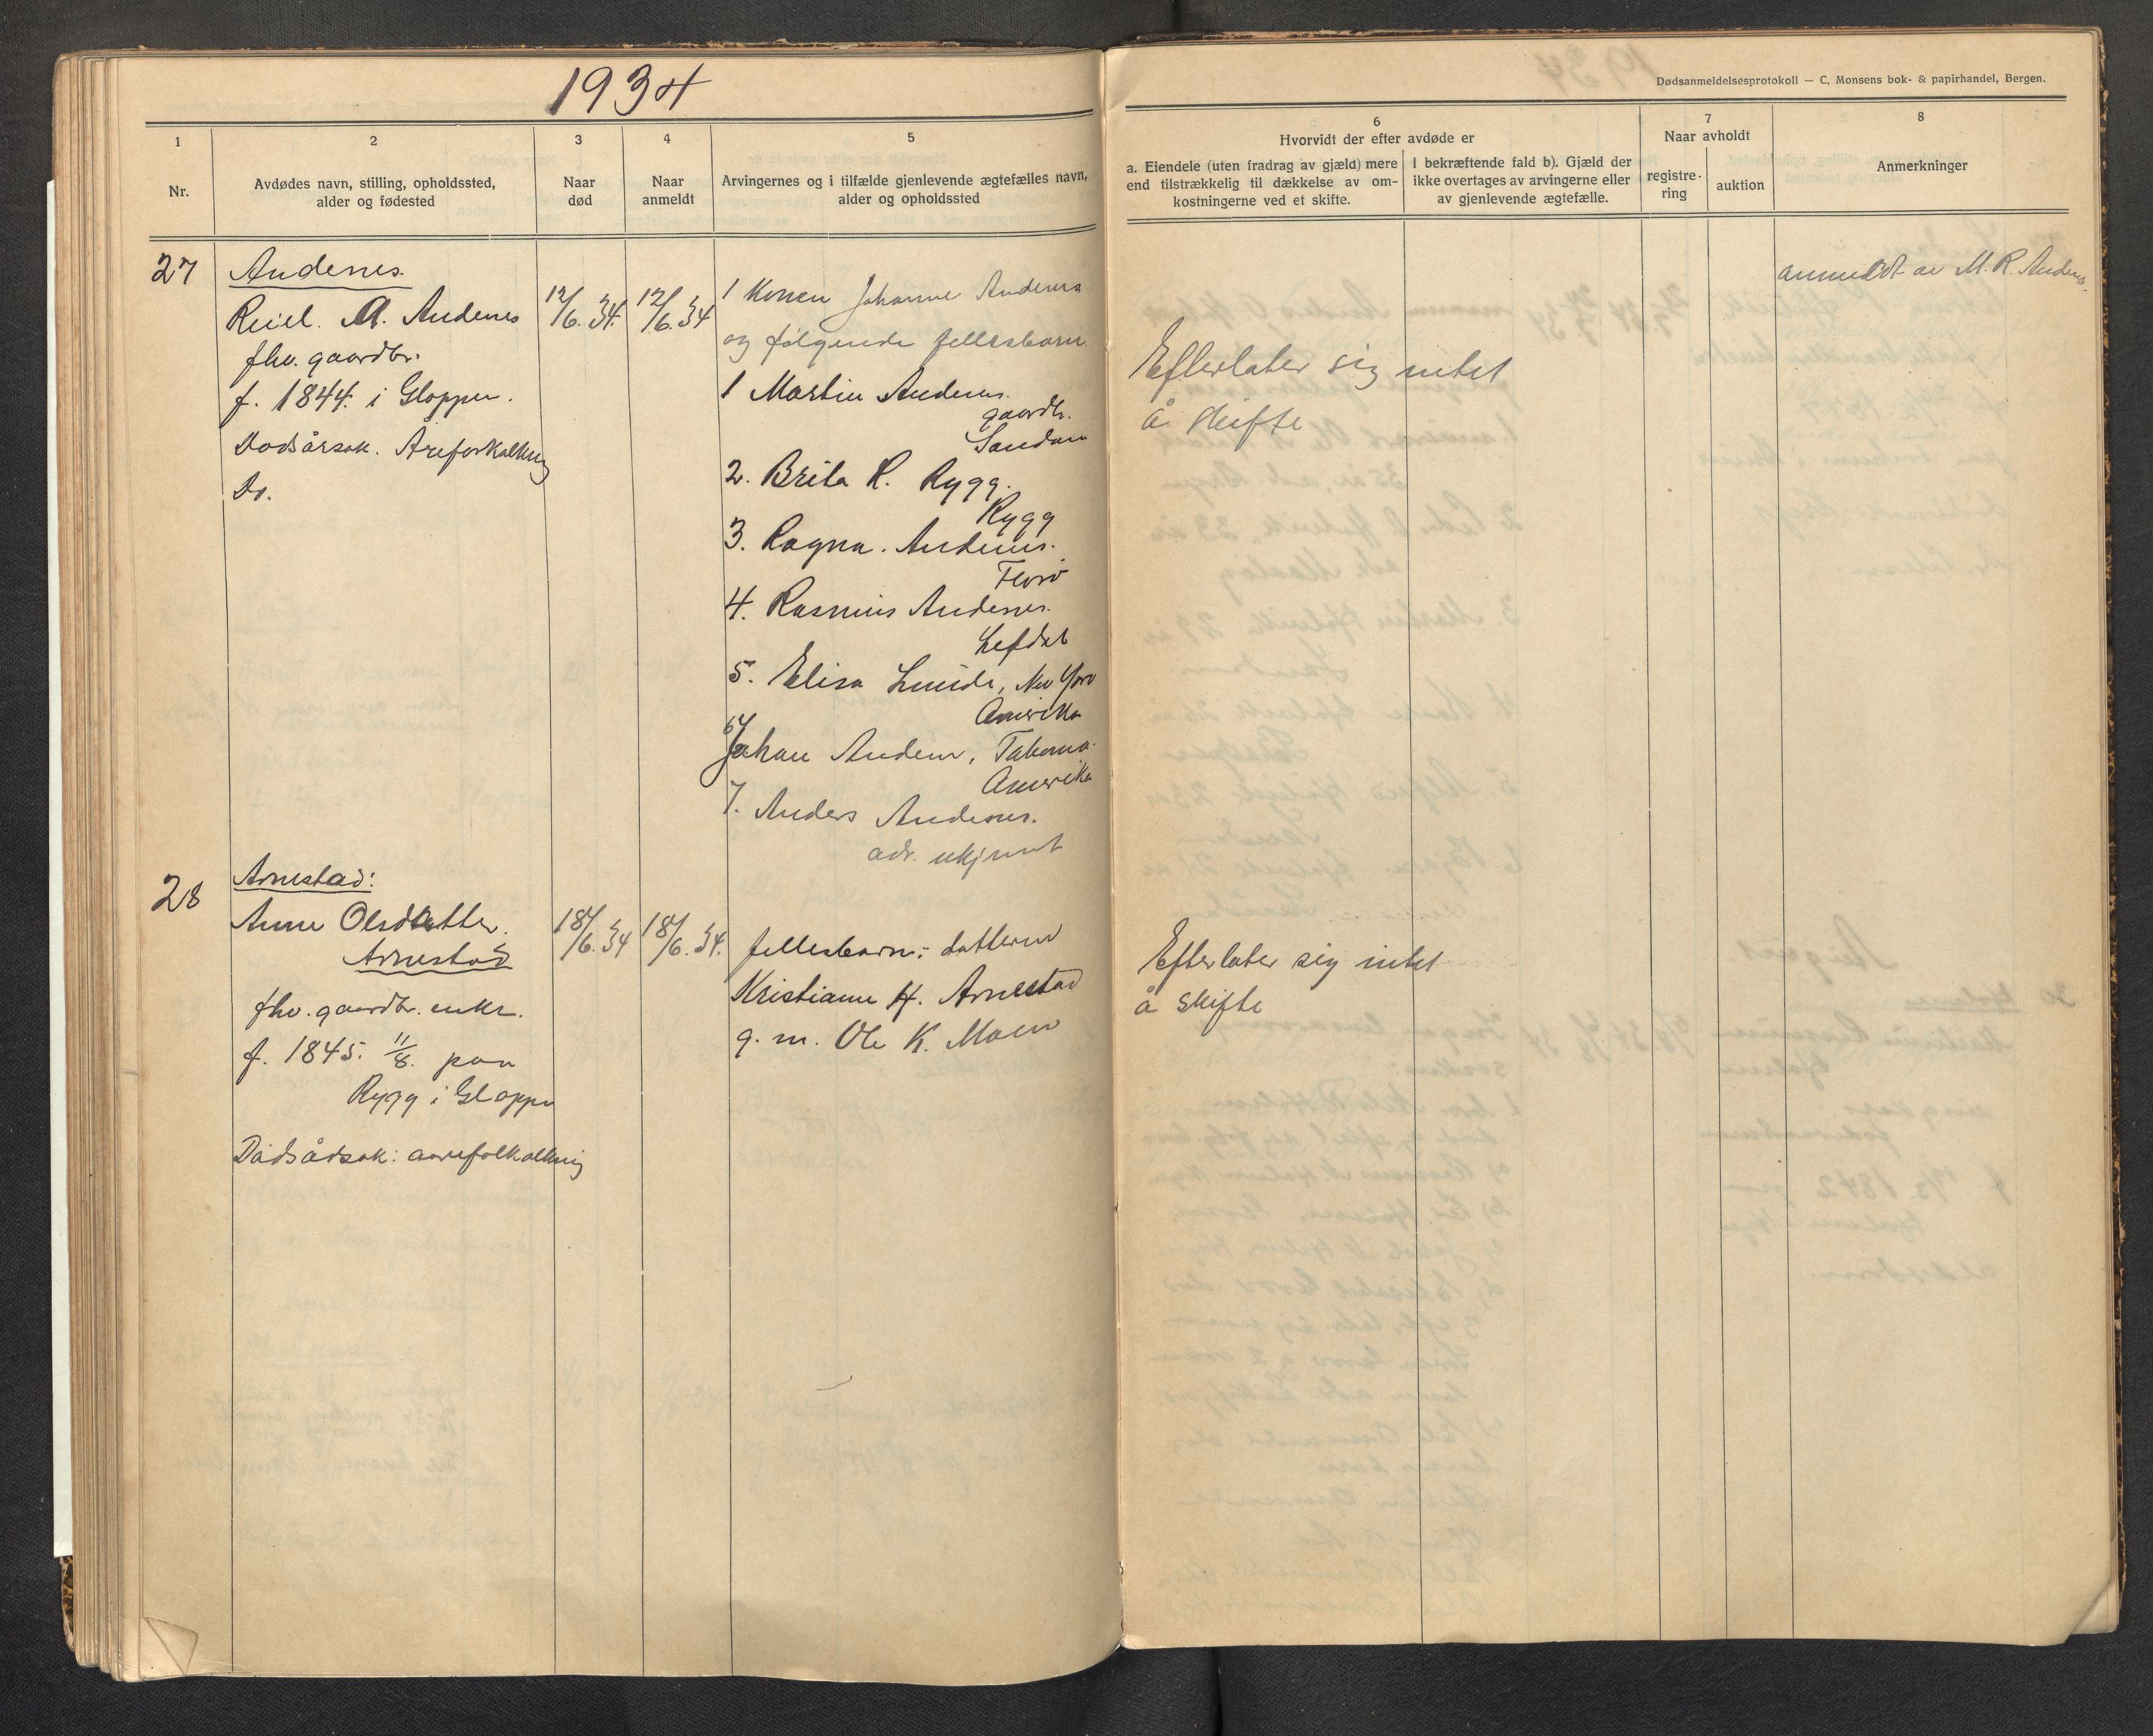 1934
Dødsanmeldelsesprotokoll — C. Monsens bok- & papirhandel, Bergen.
1
2
3
4
5
6
7
8
Nr.
Avdødes navn, stilling, opholdssted,
alder og fødested
Naar
død
Naar
anmeldt
Arvingernes og i tilfælde gjenlevende ægtefælles navn,
alder og opholdssted
Hvorvidt der efter avdøde er
a. Eiendele (uten fradrag av gjæld) mere
end tilstrækkelig til dækkelse av om-
kostningerne ved et skifte.
I bekræftende fald b). Gjæld der
ikke overtages av arvingerne eller
av gjenlevende ægtefælle.
Naar avholdt
registre-
ring
auktion
Anmerkninger
27
Andenes.
Reiel. A. Andenes
fhv. gaardbr.
f. 1844. i Gloppen.
Dødsårsak. Areforkalkning
Dr.
12/6. 34.
12/6. 34
1 Konen Johanne Andenes
og følgende fellesbarn
1 Martin Andenes.
gaardb.
Sandane
2. Brita R. Rygg.
Rygg
3. Ragna. Andenes.
Florø
4. Rasmus Andenes.
Lefdal
5. Elisa Lunde, New York
Amerika
6 Johan Andenes, Takoma.
Amerika
7. Anders Andenes.
adr. ukjent
Efterlater sig intet
å skifte
anmeldt av M. R. Andenes
28
Arnestad:
Anne Olsdatter.
Arnestad
fhv. gaardbr. enke.
f. 1845. 11/8. paa
Rygg i Gloppen
Dødsådsak: aarefolkalkning
18/6. 34
18/6. 34.
fellesbarn: datteren
Kristianne H. Arnestad
g. m. Ole K. Moen
Efterlater sig intet
å skifte